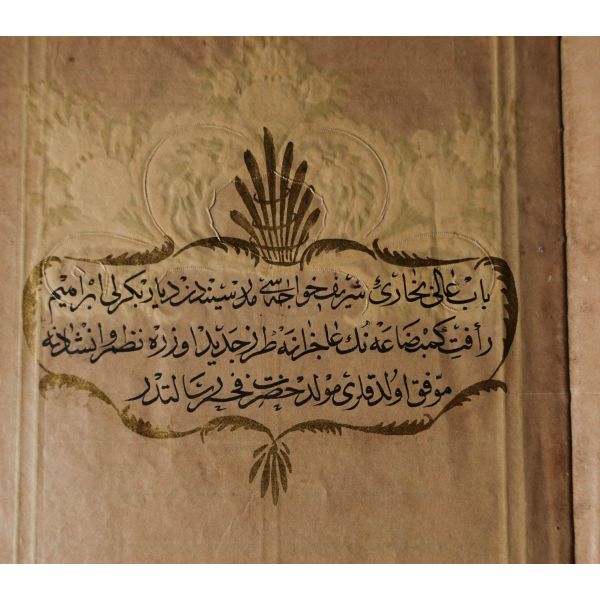 باب عالی بخاریء شریف خواجه سی مدرسیندن دیاربکرلی ابراهیم
رأفت کمبضاعه نك عاجزانه طرز جدید اوزره نظم و انشادینه
موفق اولدقلری مولد حضرت فخر رسالتدر